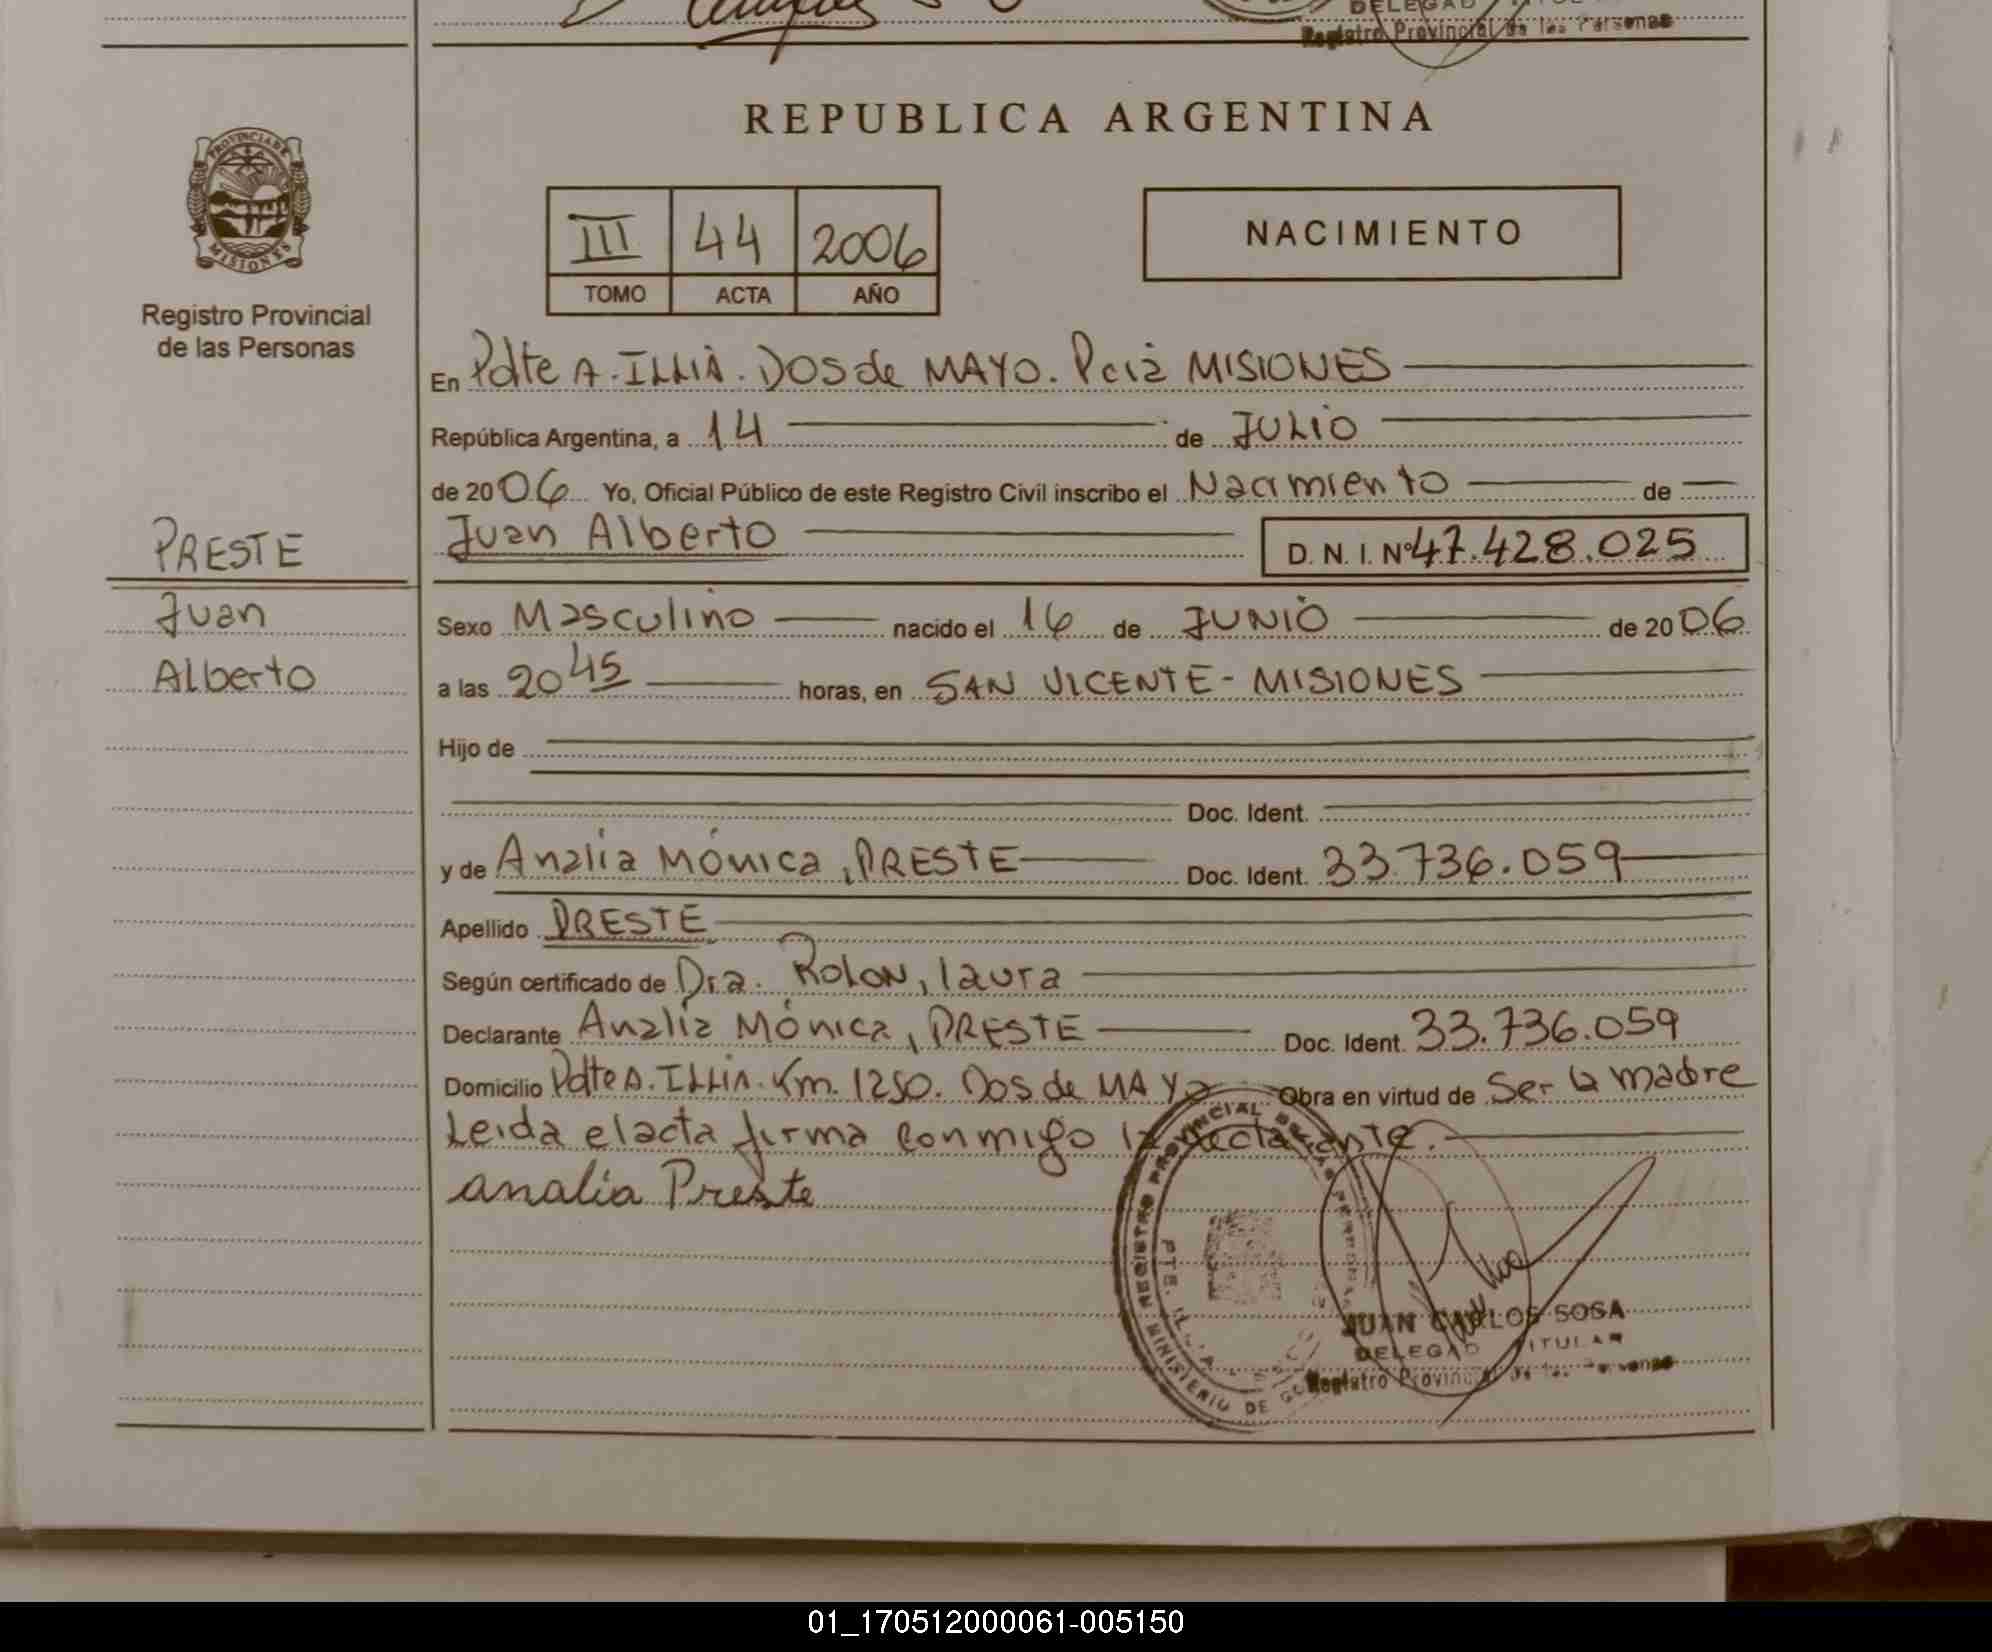 DELEGADO TITULAR
Registro Provincial de las Personas
REPUBLICA ARGENTINA
PROVINCIA DE
MISIONES
III 44 2006
TOMO ACTA AÑO
NACIMIENTO
Registro Provincial
de las Personas
En Pdte A. ILLIA. DOS de MAYO. Pcia MISIONES
República Argentina, a 14 de JULIO
de 2006 Yo, Oficial Público de este Registro Civil inscribo el Nacimiento de
Juan Alberto D. N. I. Nº 47.428.025
PRESTE
Juan
Alberto
Sexo Masculino nacido el 16 de JUNIO de 2006
a las 20 45 horas, en SAN VICENTE - MISIONES
Hijo de
Doc. Ident.
y de Analia Mónica, PRESTE Doc. Ident. 33.736.059
Apellido PRESTE
Según certificado de Dra. ROLON, laura
Declarante Analía Mónica, PRESTE Doc. Ident. 33.736.059
Domicilio Pdte A. ILLIA. Km. 1250. Dos de MAYO Obra en virtud de Ser la madre
Leida el acta firma conmigo la declarante.
analia Preste
REGISTRO PROVINCIAL DE LAS PERSONAS
MINISTERIO DE
JUAN CARLOS SOSA
DELEGADO TITULAR
Registro Provincial de las Personas
01_170512000061-005150